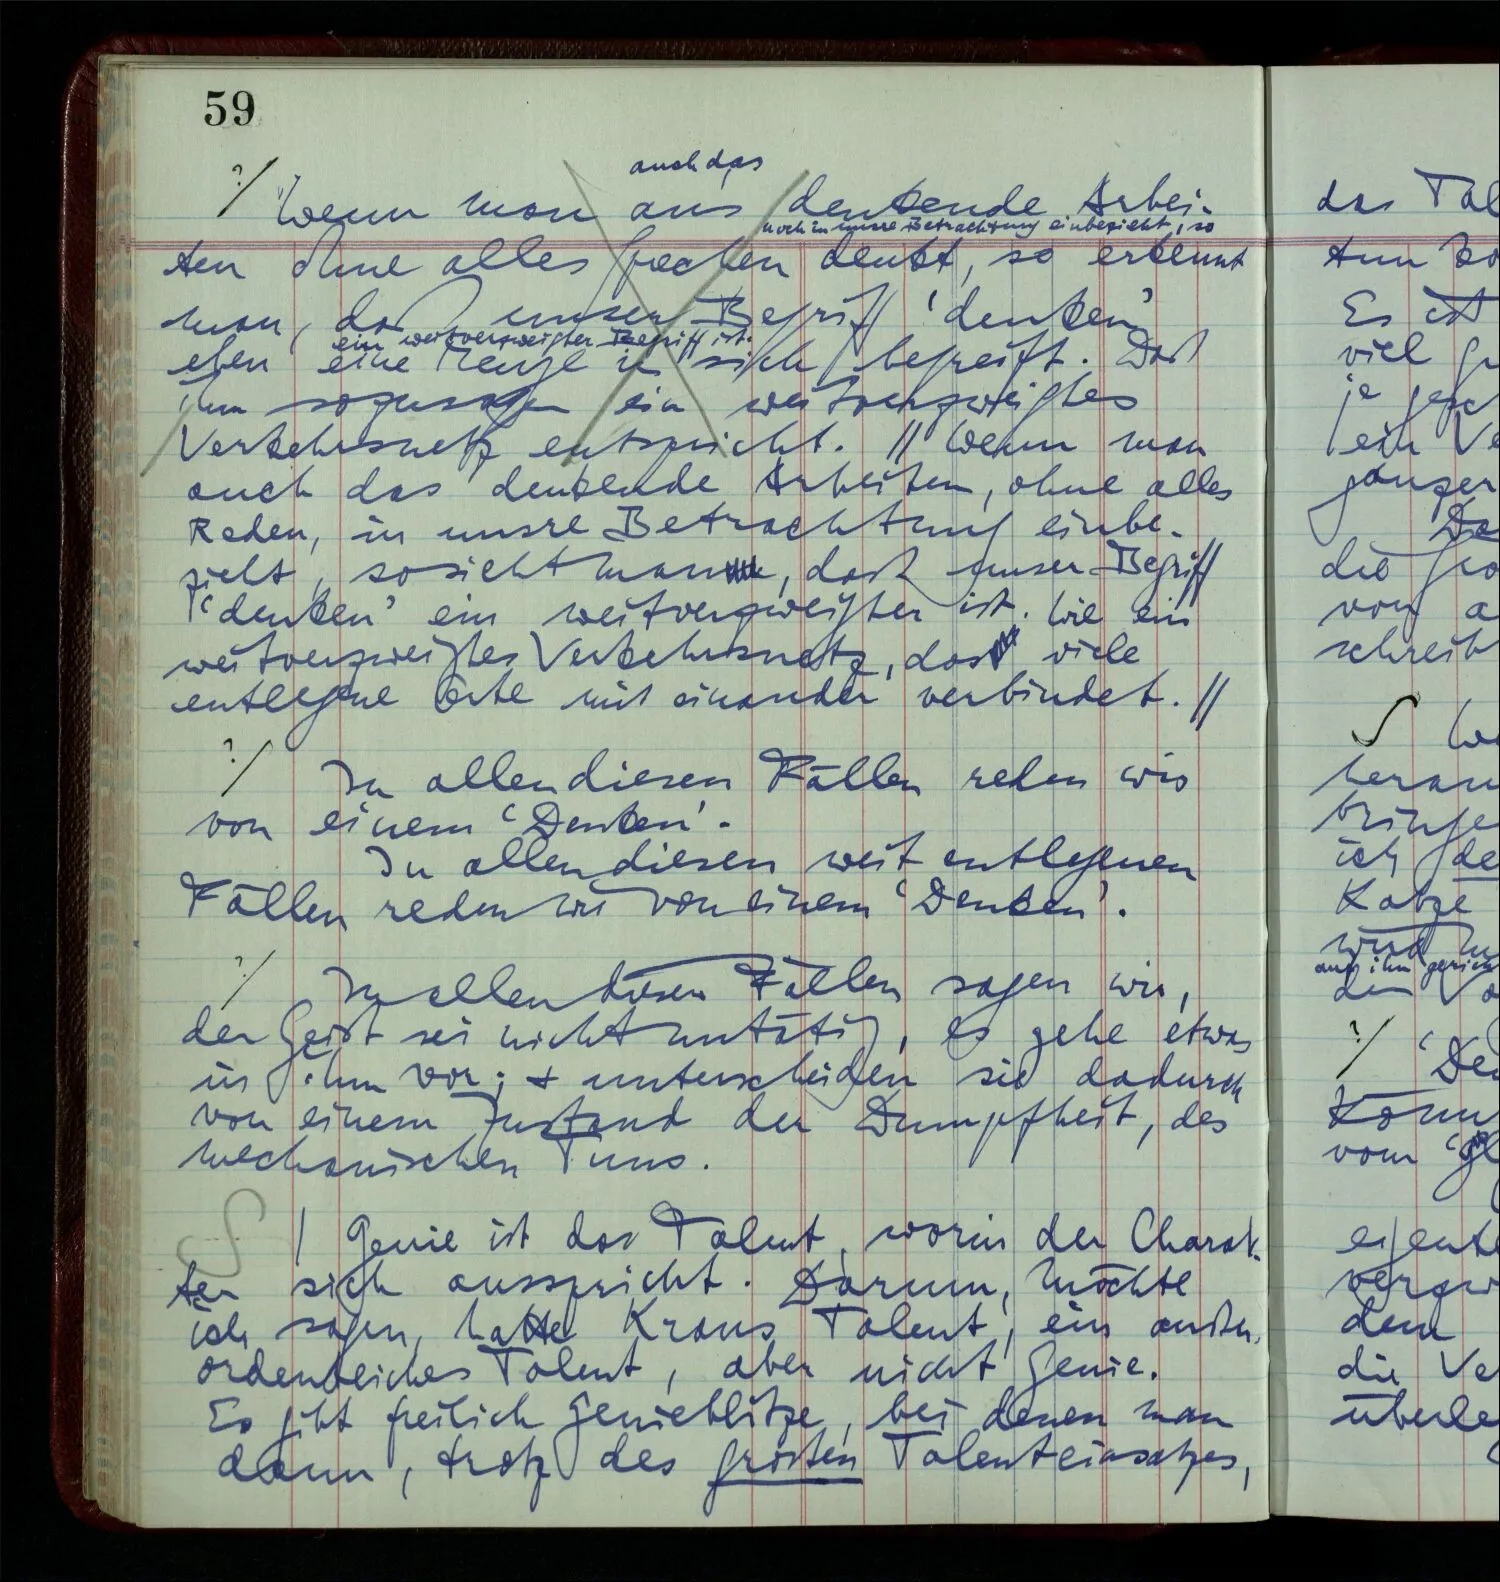 59
auch das
?/ Wenn man ans denkende Arbei-
noch in unsre Betrachtung einbezieht, so
ten ohne alles Sprechen denkt, so erkennt
man, daß unser Begriff ‘denken’
ein weitverzweigter Begriff ist.
eben eine Menge in sich begreift. Daß
ihm sozusagen ein weitverzweigtes
Verkehrsnetz entspricht. // Wenn man
auch das denkende Arbeiten, ohne alles
Reden, in unsre Betrachtung einbe-
zieht, so sieht man, daß unser Begriff
‘denken’ ein weitverzweigter ist. Wie ein
weitverzweigtes Verkehrsnetz, das viele
entlegene Orte mit einander verbindet. //
?/ In allen diesen Fällen reden wir
von einem ‘Denken’.
In allen diesen weit entlegenen
Fällen reden wir von einem ‘Denken’.
?/ In allen diesen Fällen sagen wir,
der Geist sei nicht untätig, es gehe etwas
in ihm vor; + unterscheiden sie dadurch
von einem Zustand der Dumpfheit, des
mechanischen Tuns.
S / Genie ist das Talent, worin der Charak-
ter sich ausspricht. Darum, möchte
ich sagen, hatte Kraus Talent, ein außer-
ordentliches Talent, aber nicht Genie.
Es gibt freilich Genieblitze, bei denen man
dann, trotz des großen Talenteinsatzes,
das Tal
Es ist
viel
je
ein Ve
ganzer
die
von a
schreib
S
ich de
Katze
?/ ‘De
vom
eigent
dem
die Ve
überle